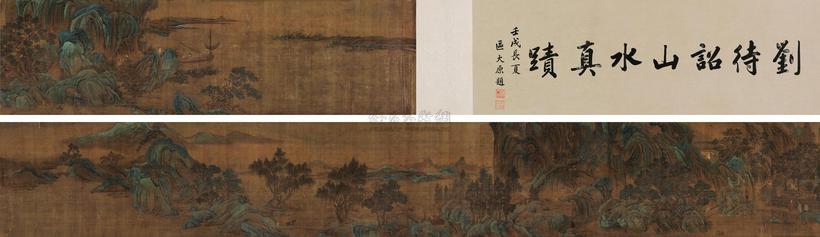 劉待詔山水真蹟
壬戌長夏
區大原題